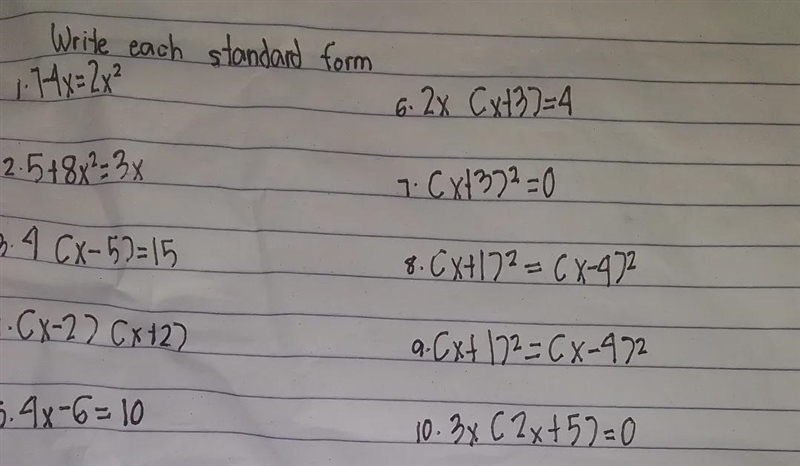 Write each standard form
1. 7-4x=2x²
2. 5+8x²=3x
3. 4 (x-5)=15
. (x-2) (x+2)
5. 4x-6=10
6. 2x (x+3)=4
7. (x+3)²=0
8. (x+1)²=(x-4)²
9. (x+1)²=(x-4)²
10. 3x (2x+5)=0